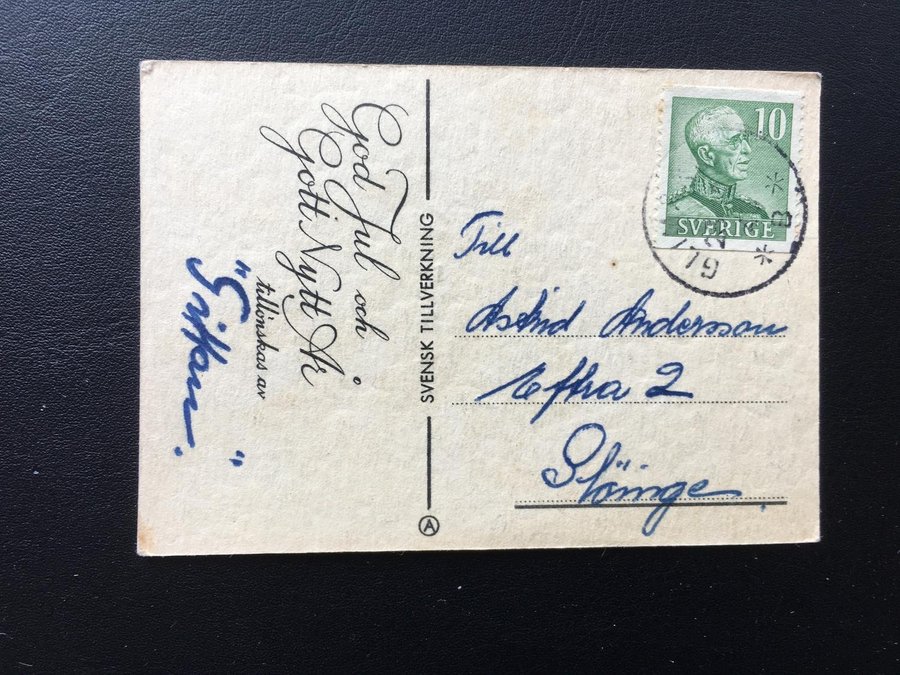 God Jul och
Gott Nytt År
tillönskas av
"Gittan."
SVENSK TILLVERKNING
A
10
SVERIGE
Till
Astrid Andersson
Eftra 2
Slöinge